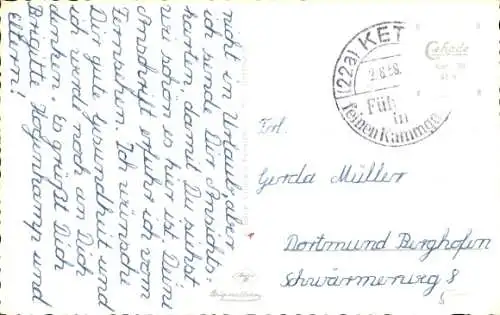 nicht in Urlaub, aber
ich sende Dir Ansichts-
karten, damit Du siehst
wie schön es hier ist. Deine
Anschrift erfuhr ich vom
Fernsehen. Ich wünsche
Dir gute Gesundheit und
ich werde noch an Dich
denken. Es grüßt Dich
Brigitte Hogenkamp und
Eltern!
(22a) KET
2.6.58.
Füh
in
feinen Kammga
Cekade
Frl.
Gerda Müller
Dortmund Berghofen
Schwärmerweg 8